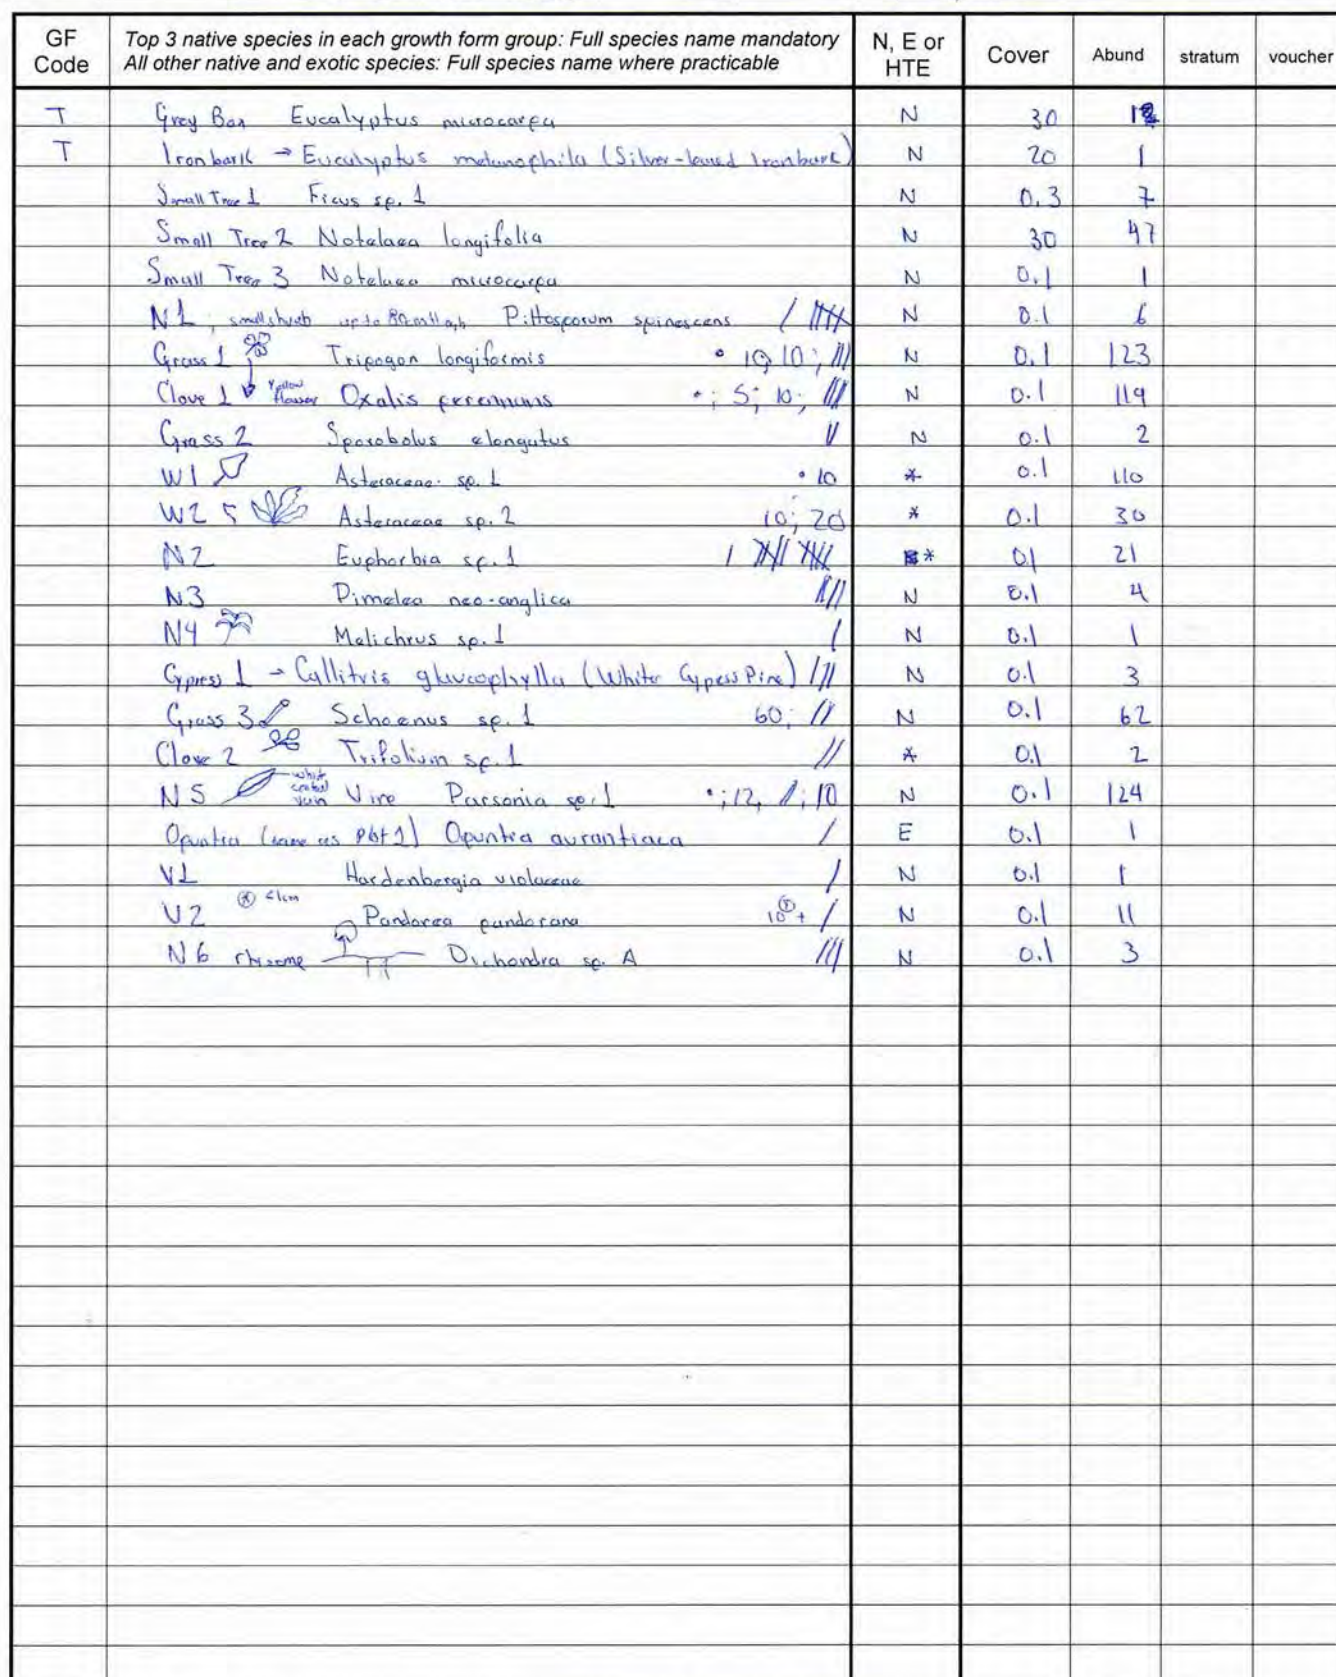 GF Code Top 3 native species in each growth form group: Full species name mandatory All other native and exotic species: Full species name where practicable N, E or HTE Cover Abund stratum voucher
T Grey Box Eucalyptus microcarpa N 30
T Ironbark → Eucalyptus melanophila (Silver-leaved Ironbark) N 20 1
Small Tree 1 Ficus sp. 1 N 0.3 7
Small Tree 2 Notelaea longifolia N 30 47
Small Tree 3 Notelaea microcarpa N 0.1 1
N1; small shrub up to Pittosporum spinescens N 0.1 6
Grass 1 Tripogon longiformis • 10, 10; /// N 0.1 123
Clove 1 Yellow flower Oxalis perennans •; 5; 10; //// N 0.1 119
Grass 2 Sporobolus elongatus // N 0.1 2
W1 Asteraceae sp. 1 • 10 * 0.1 110
W2 Asteraceae sp. 2 10; 20 * 0.1 30
N2 Euphorbia sp. 1 * 0.1 21
N3 Pimelea neo-anglica //// N 0.1 4
N4 Melichrus sp. 1 / N 0.1 1
Cypress 1 → Callitris glaucophylla (White Cypress Pine) /// N 0.1 3
Grass 3 Schoenus sp. 1 60; // N 0.1 62
Clove 2 Trifolium sp. 1 // * 0.1 2
N5 white central vein Vine Parsonia sp. 1 •; 12, //; 10 N 0.1 124
Opuntia (same as Plot 1) Opuntia aurantiaca / E 0.1 1
V1 Hardenbergia violaceae / N 0.1 1
V2 <1cm Pandorea pandorana 10 + / N 0.1 11
N6 rhizome Dichondra sp. A /// N 0.1 3